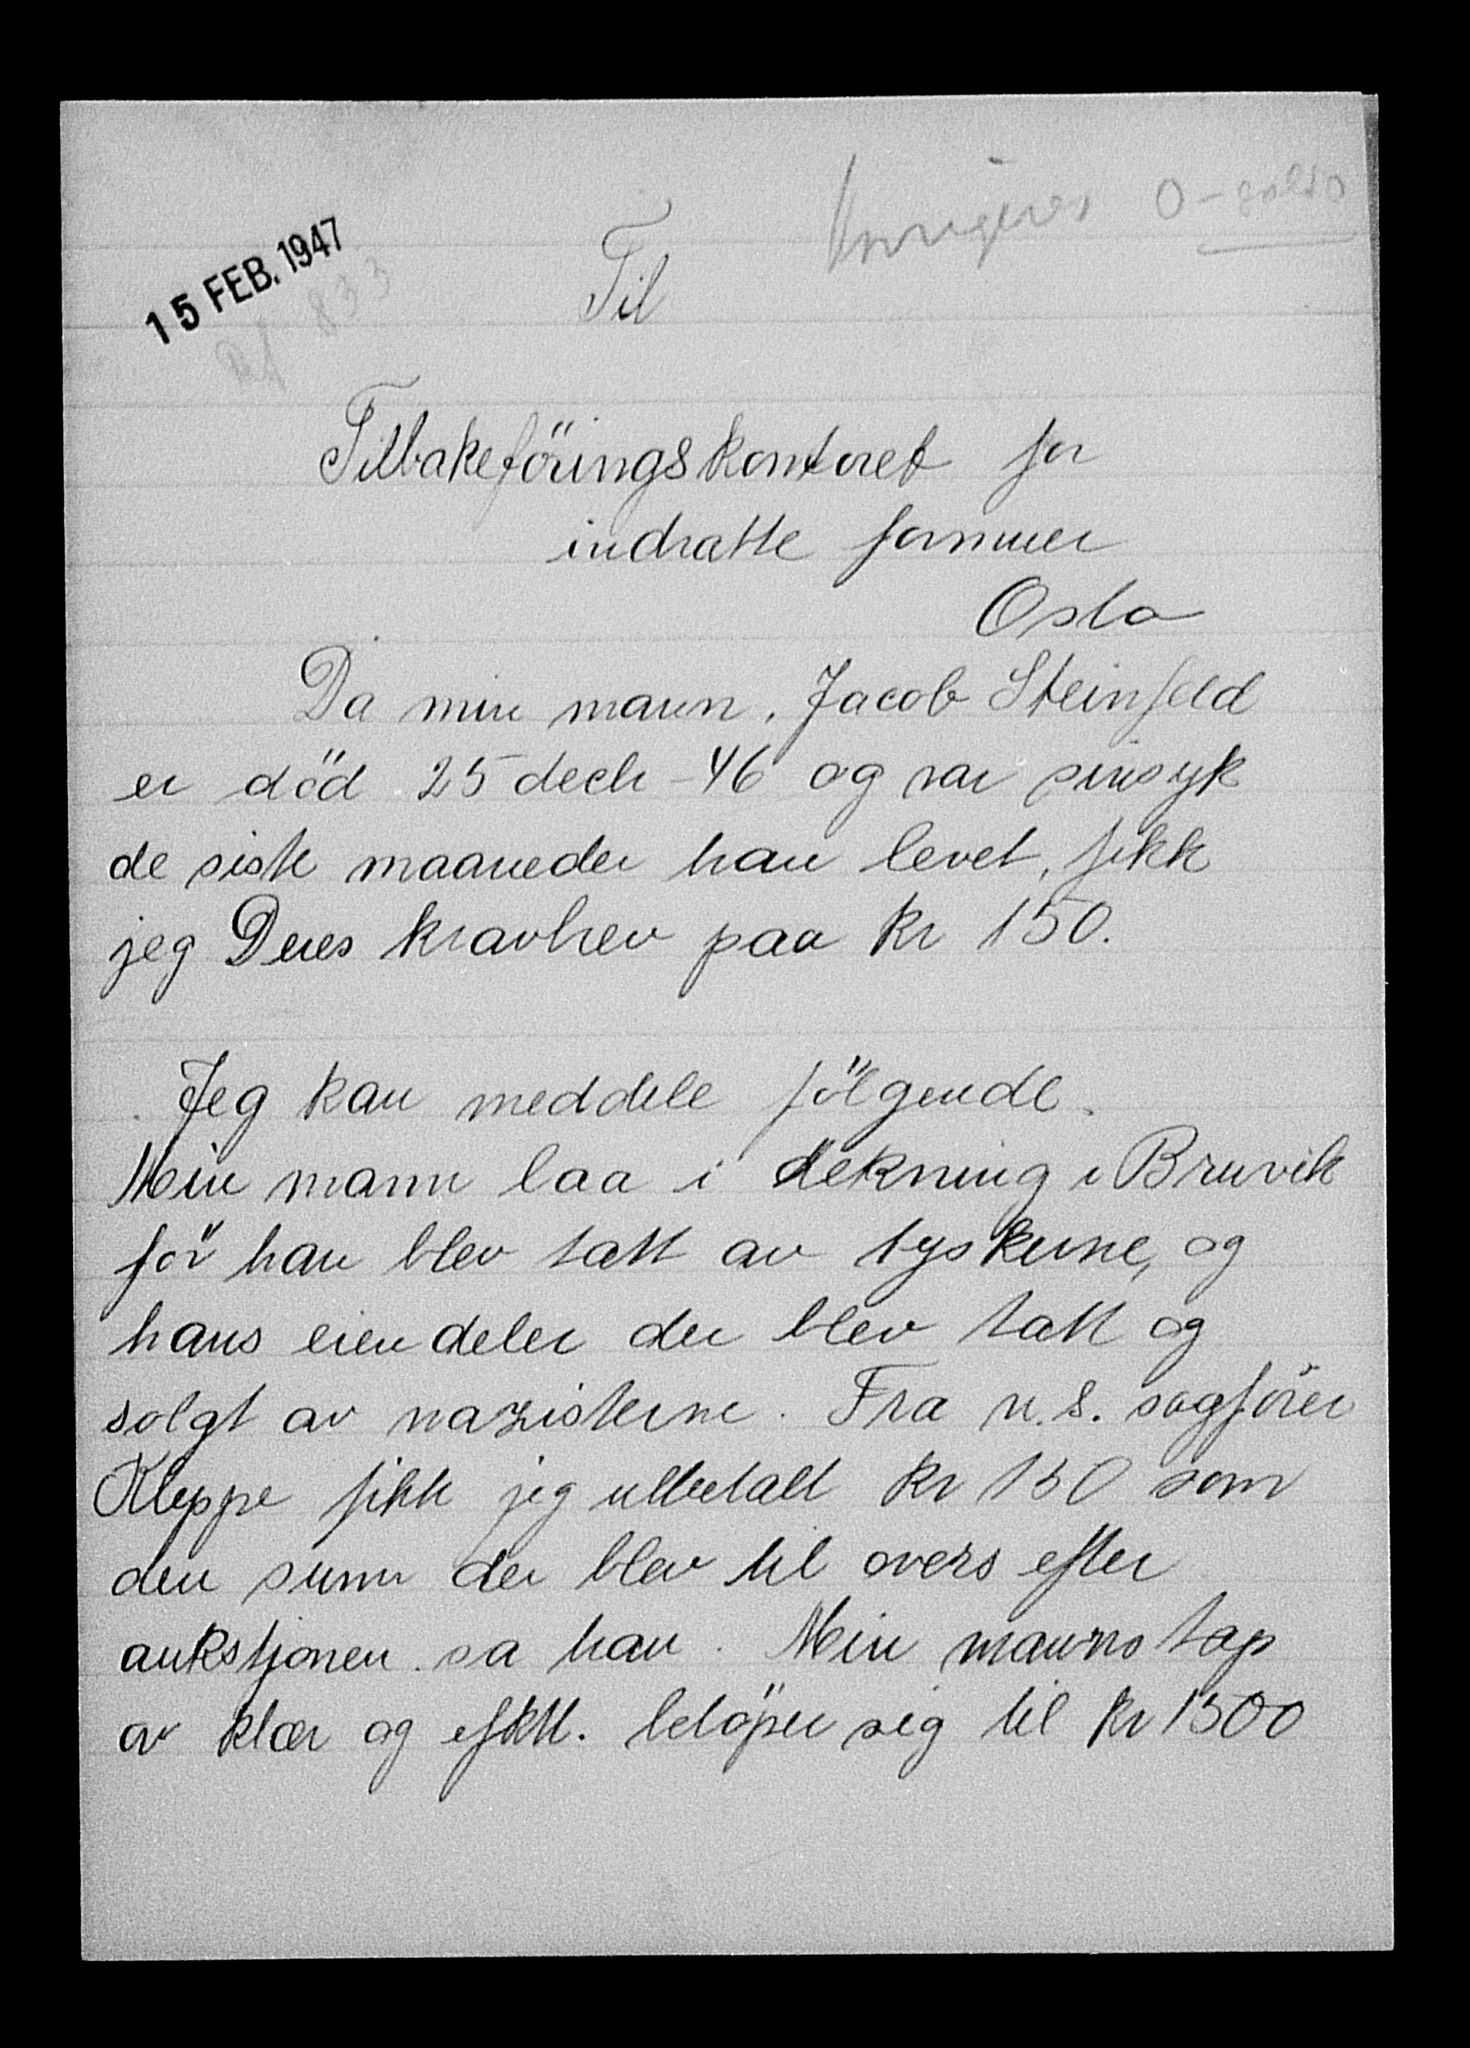 15 FEB. 1947
Korrigeres 0-saldo
833
Til
Tilbakeföringskontoret for
indratte formuer
Oslo
Da min mann, Jacob Steinfeld
er död 25 decb -46 og var sinsyk
de siste maaneder han levet, fikk
jeg Deres kravbrev paa kr 150.
Jeg kan meddele fölgende.
Min mann laa i dekning i Bruvik
för han blev tatt av tyskerne, og
hans eiendeler der blev tatt og
solgt av nazisterne. Fra n.s. sagförer
Kleppe fikk jeg utbetalt kr 150 som
den sum der blev til overs efter
aukstjonen sa han. Min manns tap
av klær og efkt. belöper sig til kr 1500